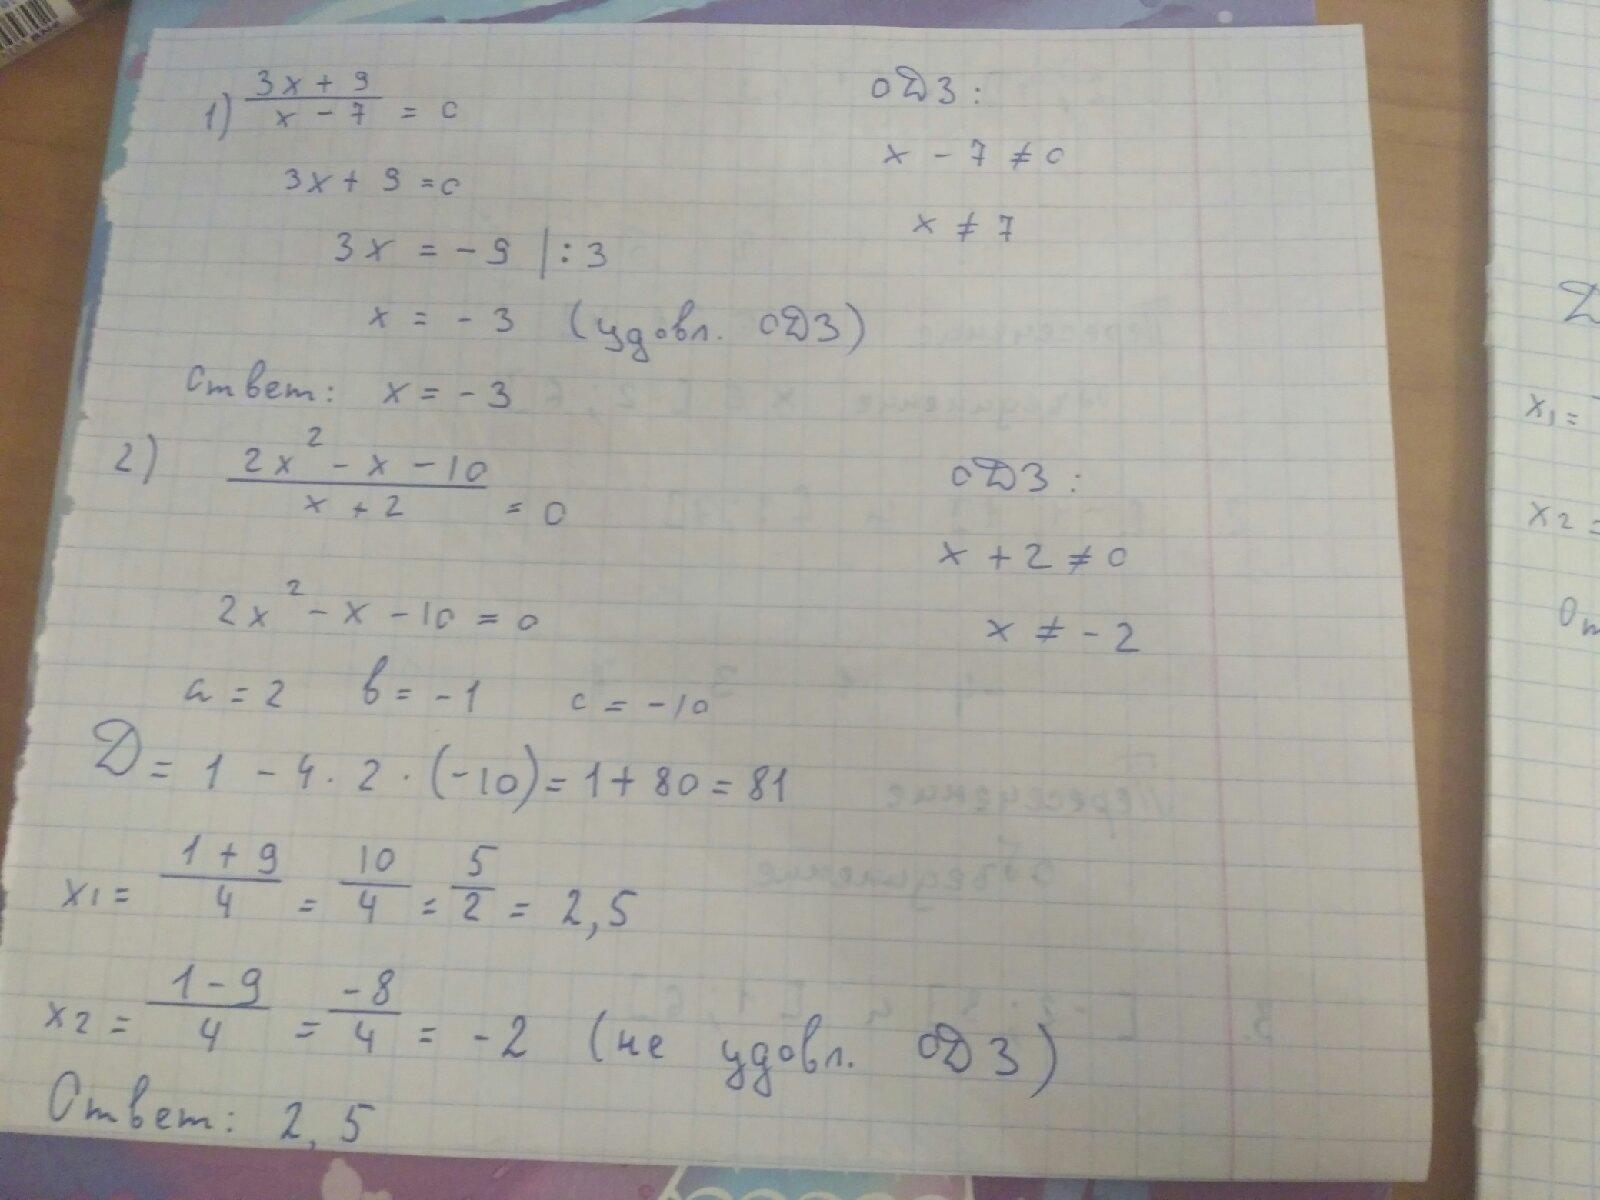 1) (3x + 9)/(x - 7) = 0
ОДЗ:
x - 7 ≠ 0
3x + 9 = 0
x ≠ 7
3x = -9 | : 3
x = -3 (удовл. ОДЗ)
Ответ: x = -3
2) (2x² - x - 10)/(x + 2) = 0
ОДЗ:
x + 2 ≠ 0
2x² - x - 10 = 0
x ≠ -2
a = 2 b = -1 c = -10
D = 1 - 4 · 2 · (-10) = 1 + 80 = 81
x1 = (1 + 9)/4 = 10/4 = 5/2 = 2,5
x2 = (1 - 9)/4 = -8/4 = -2 (не удовл. ОДЗ)
Ответ: 2,5
x1 =
x2 =